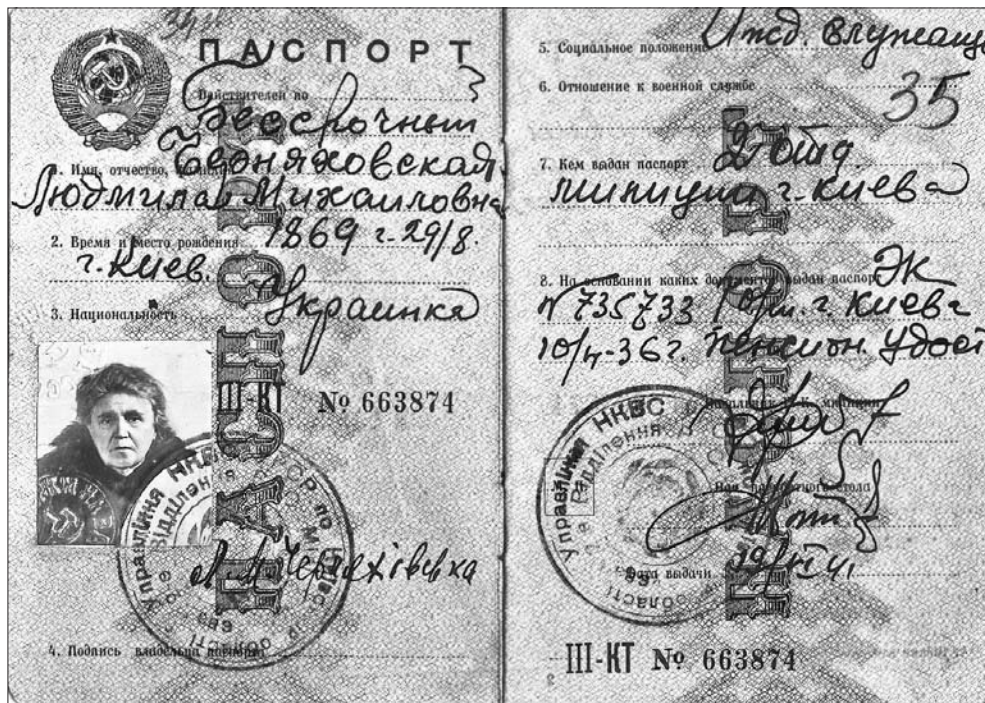 ПАСПОРТ
Действителен по
Бессрочный
1. Имя, отчество,
Черняховская
Людмила Михайловна
2. Время и место рождения 1869 г. 29/8.
г. Киев.
3. Национальность Украинка
III-КТ № 663874
Л. М. Черняхівська
4. Подпись владельца паспорта
5. Социальное положение Ижд. служаще
6. Отношение к военной службе
35
7. Кем выдан паспорт 2 отд.
милиции г. Киева
8. На основании каких документов выдан паспорт
№ 735733 г. Киева
10/ -36 г. пенсион. удост
Управління НКВС
Відділення
Дата выдачи
III-КТ № 663874
ПАСПОРТ